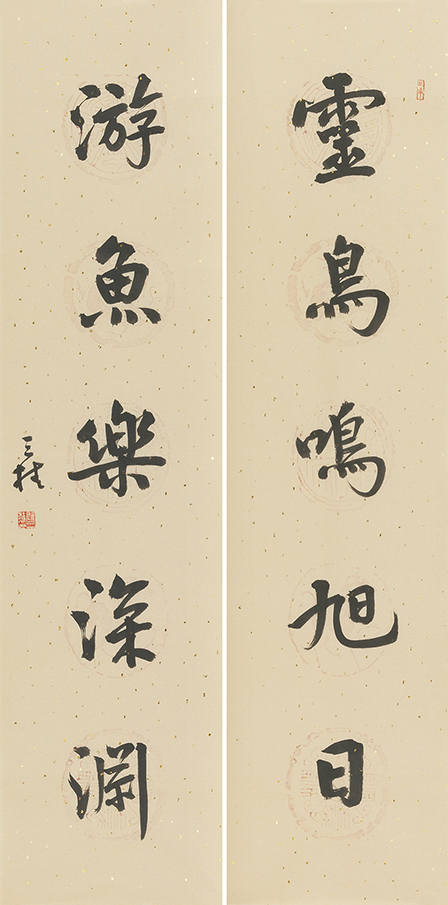 靈鳥鳴旭日
游魚樂深淵
三桂